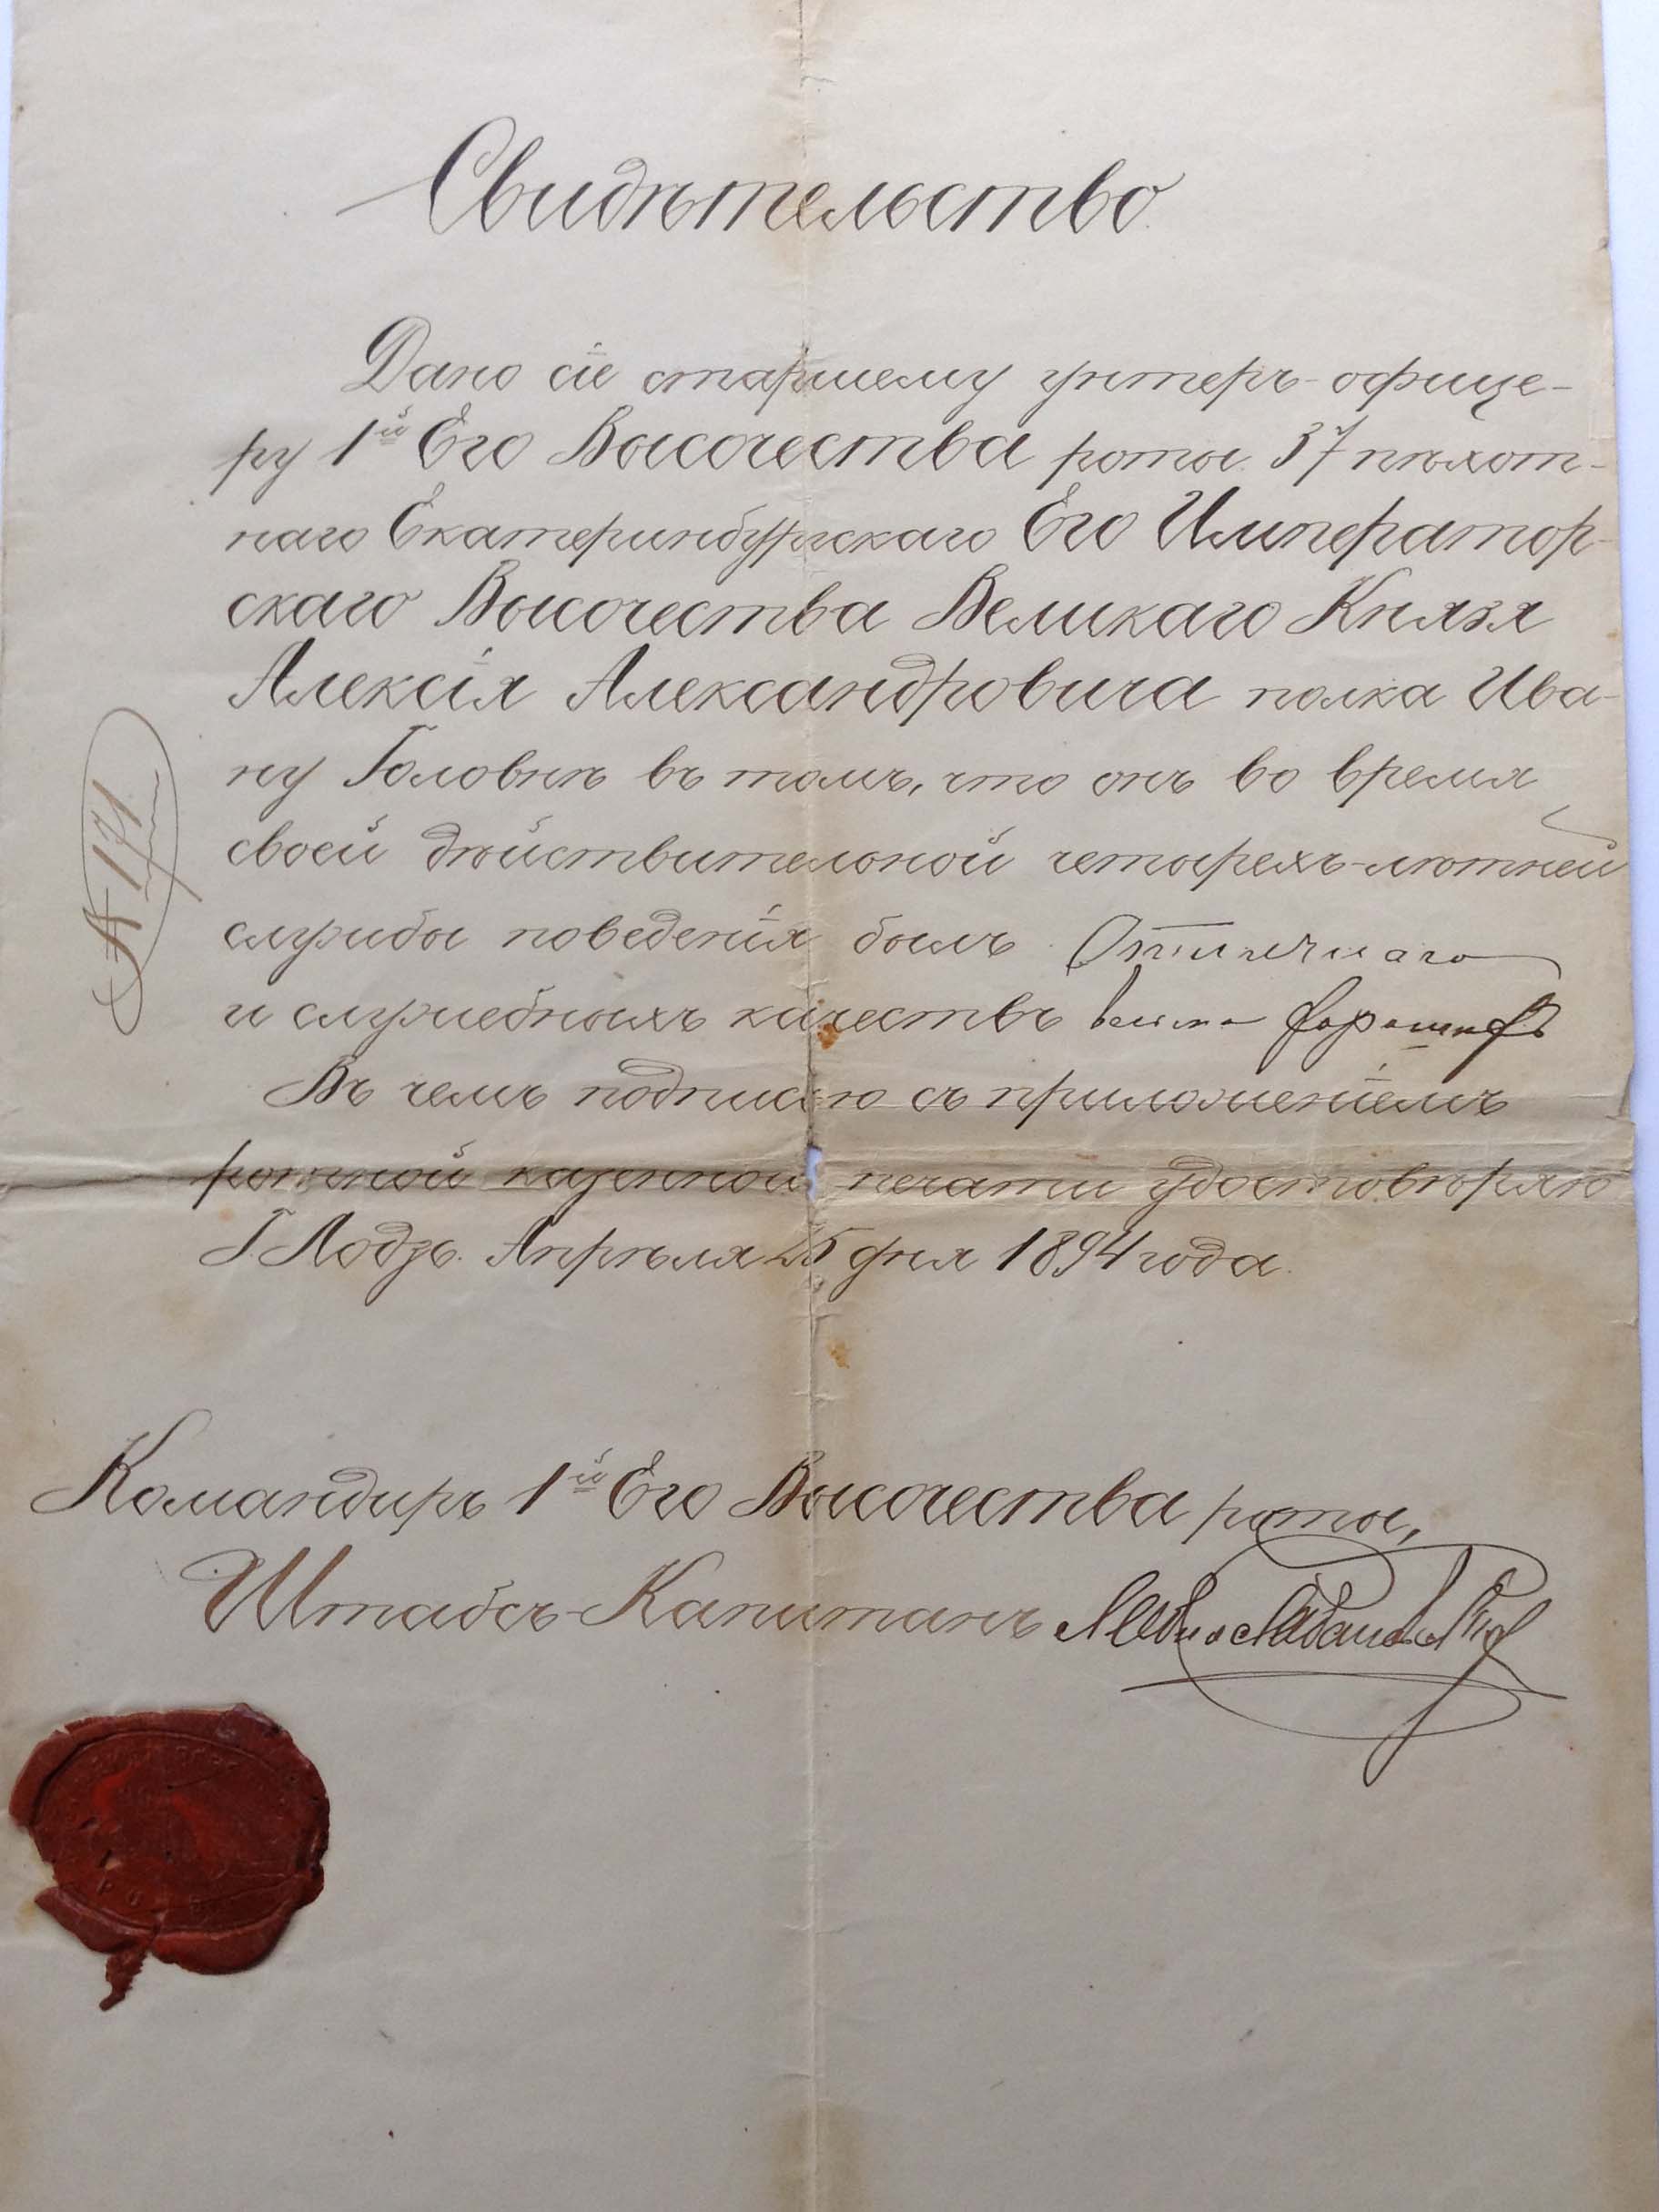 Свидѣтельство.
Дано сіе старшему унтеръ-офице-
ру 1й Его Высочества роты 37 пѣхот-
наго Екатеринбургскаго Его Император-
скаго Высочества Великаго Князя
Алексія Александровича полка Ива-
ну Головнѣ въ томъ, что онъ во время
своей дѣйствительной четырехъ-лѣтней
службы поведенія былъ Отличнаго
и служебныхъ качествъ весьма хорошихъ
Въ чемъ подписью съ приложеніемъ
ротной казенной печати удостовѣряю
Г. Лодзь. Апрѣля 25 дня 1894 года.
Командиръ 1й Его Высочества роты,
Штабсъ-Капитанъ
№ 171